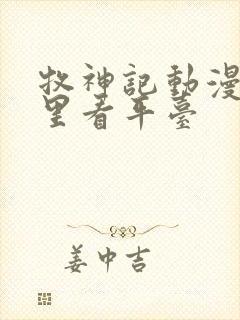 牧神記動漫
里看平臺
姜中吉